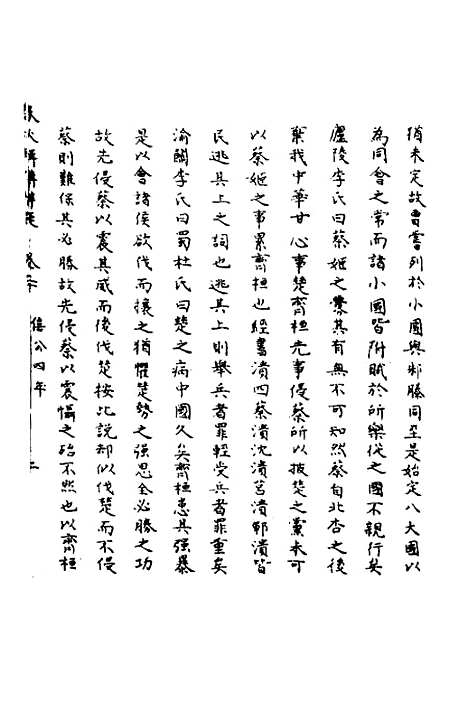 猶未定故曹嘗列於小國與邾滕同至是始定八大國以
為同會之常而諸小國皆附賦於所樂從之國不親行矣
廬陵李氏曰蔡姬之釁其有無不可知然蔡自北杏之後
棄我中華甘心事楚齊桓先事侵蔡所以披楚之黨未可
以蔡姬之事累齊桓也經書潰四蔡潰沈潰莒潰鄆潰皆
民逃其上之詞也逃其上則舉兵者罪輕受兵者罪重矣
渝閼李氏曰蜀杜氏曰楚之病中國久矣齊桓患其強暴
是以會諸侯欲伐而攘之猶懼楚勢之強思全必勝之功
故先侵蔡以震其威而後伐楚按此說却似伐楚而不侵
蔡則難保其必勝故先侵蔡以震懾之殆不然也以齊桓
僖公四年